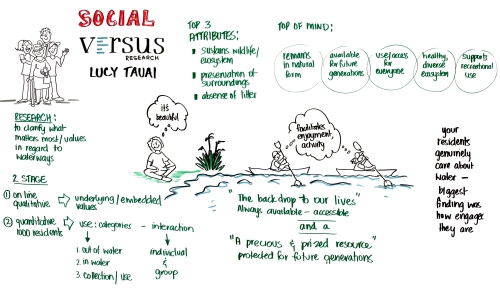 SOCIAL
VERSUS
RESEARCH
LUCY TAUAI
TOP 3
ATTRIBUTES:
sustains wildlife/
ecosystem
preservation of
surroundings
absense of litter
TOP OF MIND:
remains
in natural
form
available
for future
generations
use/access
for
everyone
healthy,
diverse
ecosystem
supports
recreational
use
RESEARCH:
to clarify what
matters most/values
in regard to
waterways
it's
beautiful
facilitates
enjoyment,
activity
your
residents
genuinely
care about
water –
biggest
finding was
how engaged
they are
2 STAGE
1 on line,
qualitative
underlying/embedded
values
2 quantitative
1000 residents
use: categories – interaction
1. out of water
2. in water
3. collection/use
individual
&
group
"The back drop to our lives"
Always available – accessible
and a
"A precious & prized resource"
protected for future generations